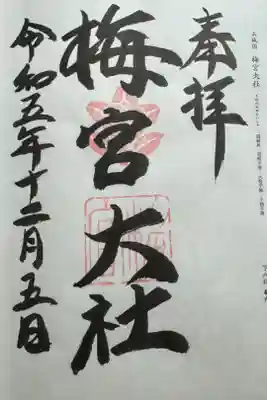 山城国 梅宮大社
奉拝
梅宮大社
令和五年十二月五日